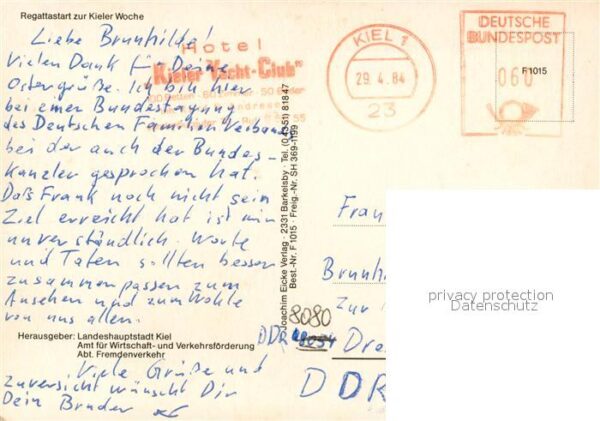 Regattastart zur Kieler Woche
Liebe Brunhilde!
Vielen Dank für Deine
Ostergrüße. Ich bin hier
bei einer Bundestagung
des Deutschen Familienverbandes
bei der auch der Bundes-
kanzler gesprochen hat.
Daß Frank noch nicht sein
Ziel erreicht hat ist mir
unverständlich. Worte
und Taten sollten besser
zusammenpassen zum
Ansehen und zum Wohle
von uns allen.
Herausgeber: Landeshauptstadt Kiel
Amt für Wirtschaft- und Verkehrsförderung
Abt. Fremdenverkehr
Viele Grüße und
Zuversicht wünscht Dir
Dein Bruder
Hotel
Kieler Yacht-Club
KIEL 1
29.4.84
23
DEUTSCHE
BUNDESPOST
060
F1015
Joachim Eicke Verlag · 2331 Barkelsby · Tel. (0 4351) 818 47
Best.-Nr. F 1015 · Freig.-Nr. SH 369-1199
Frau
Brunhi
Zur
8080
DDR
Dre
DDR
privacy protection
Datenschutz